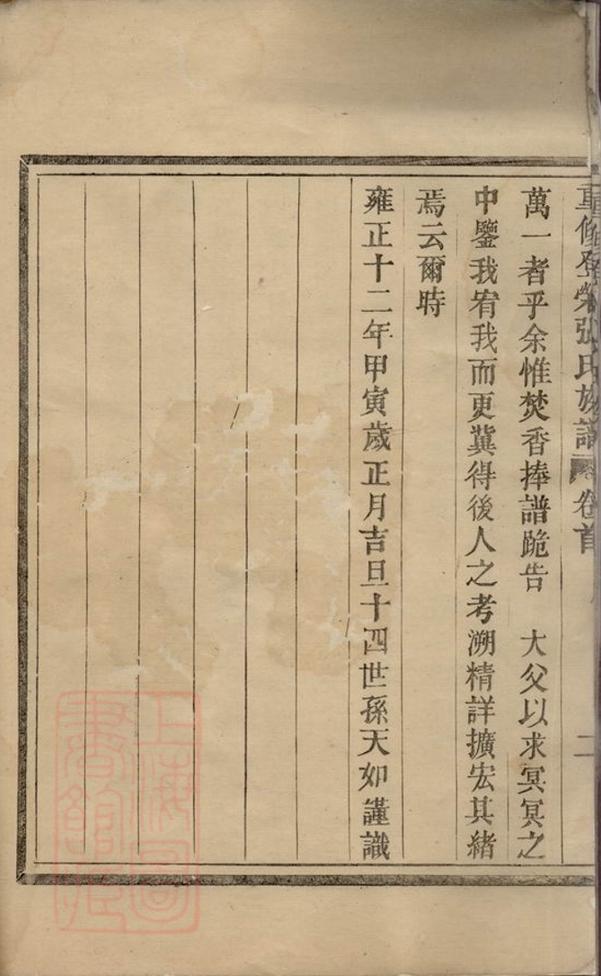 重修登榮張氏族譜 卷首 二
萬一者乎余惟焚香捧譜跪告　大父以求冥冥之
中鑒我宥我而更冀得後人之考溯精詳擴宏其緒
焉云爾時
雍正十二年甲寅歲正月吉旦十四世孫天如謹識
上海圖書館藏